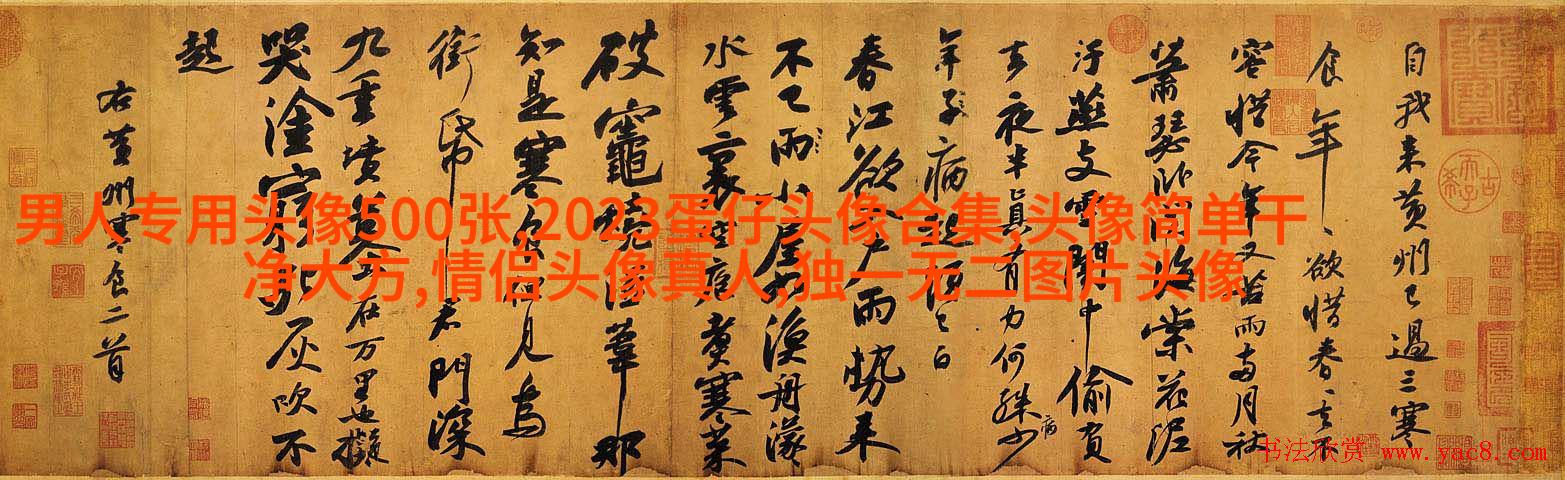 自我来黄州已過三寒
食年〻欲惜春〻去不
容惜今年又苦雨兩月秋
蕭瑟卧聞海棠花泥
汙燕支雪闇中偷負
去夜半真有力何殊少
病
年子病起頭已白
春江欲入户雨勢来
不已雨小屋如漁舟濛
水雲裏空庖煮寒菜
破竈燒濕葦那
知是寒食但見烏
銜帋君門深
九重墳墓在万里也擬
哭塗窮死灰吹不
起
右黄州寒食二首
男人专用头像500张,2023蛋仔头像合集,头像简单干
净大方,情侣头像真人,独一无二图片头像
书法欣赏 www.yac8.com